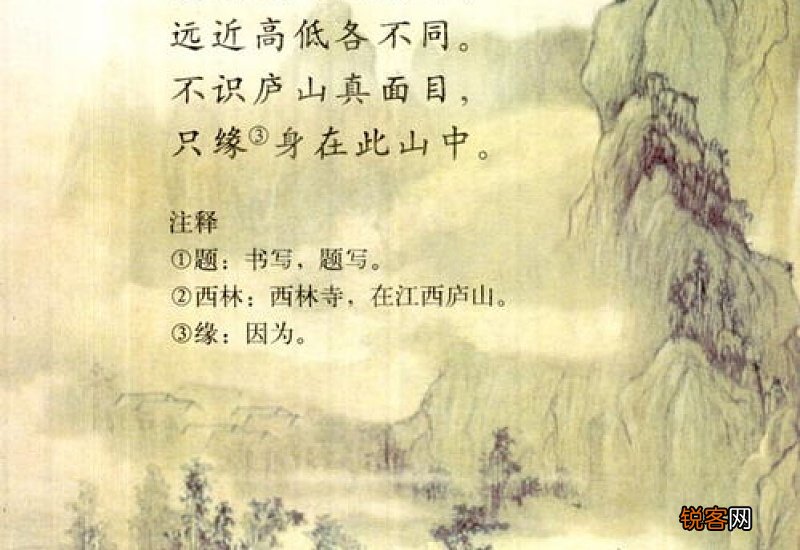 远近高低各不同。
不识庐山真面目，
只缘③身在此山中。
注释
①题：书写，题写。
②西林：西林寺，在江西庐山。
③缘：因为。
锐客网